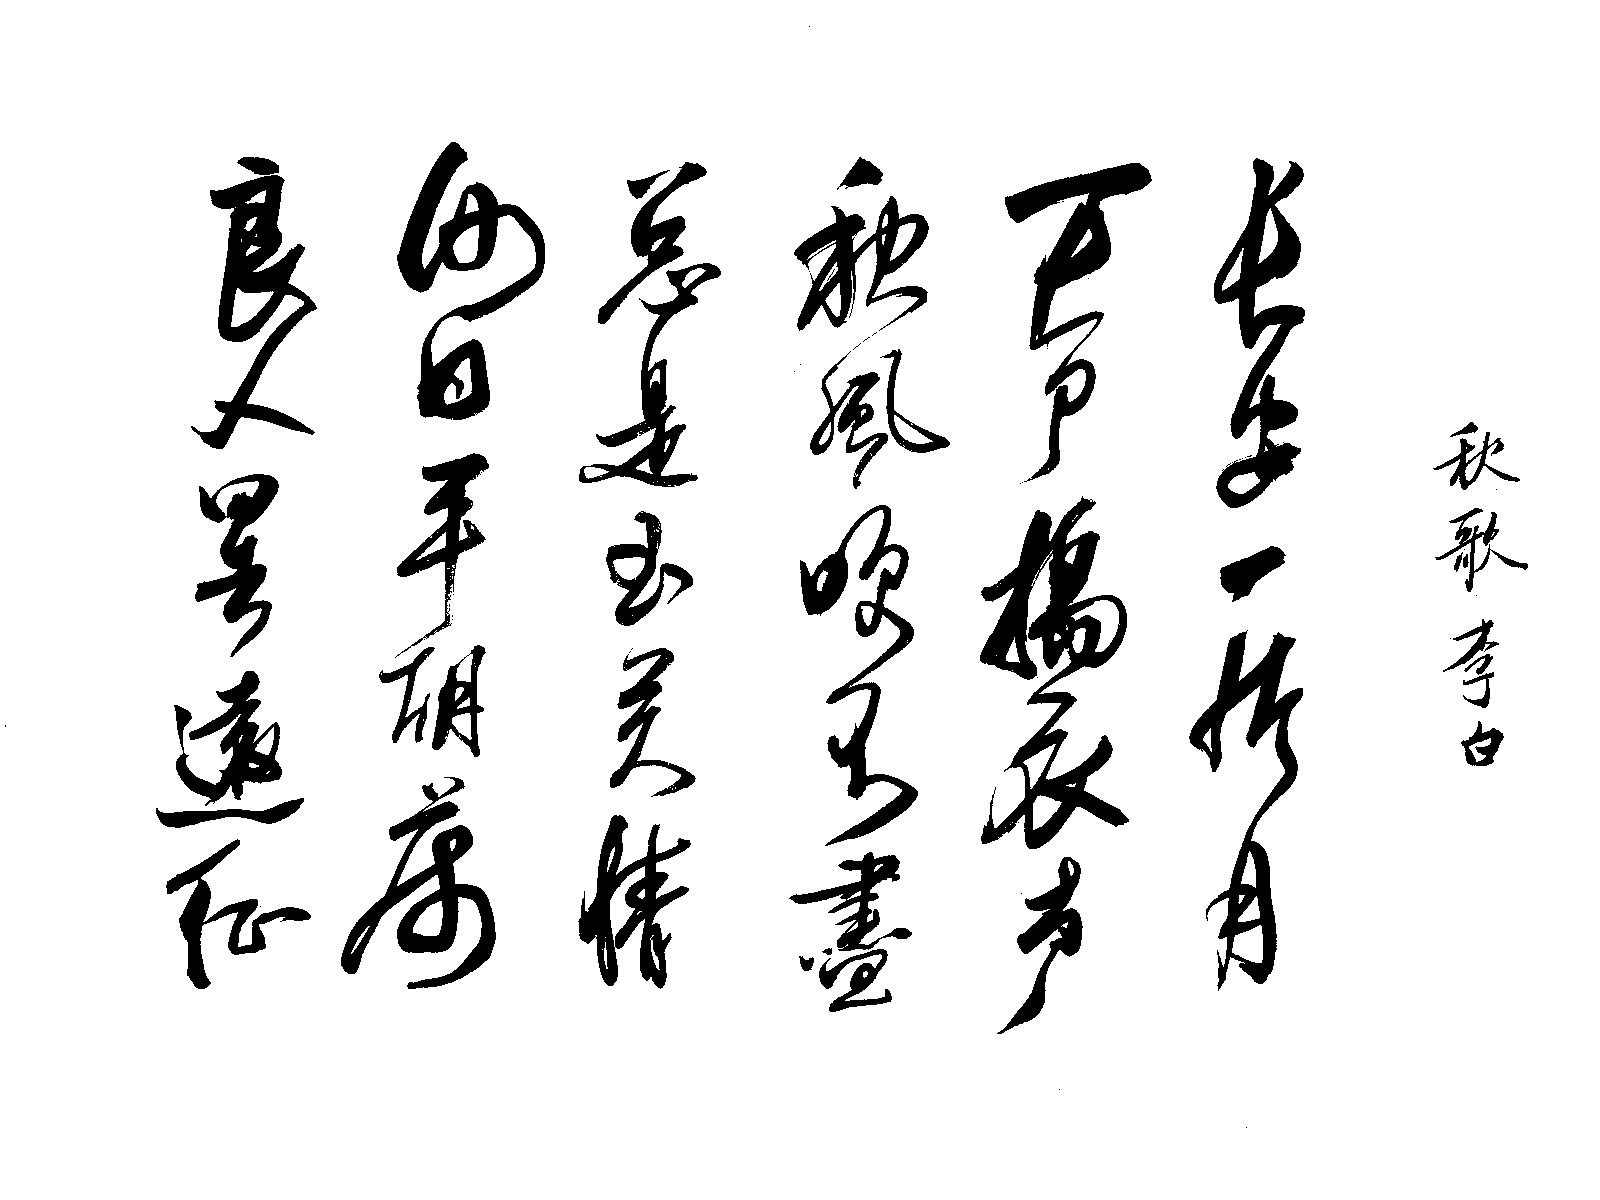 秋歌 李白
长安一片月
万户搗衣声
秋風吹不盡
总是玉关情
何日平胡虏
良人罢遠征